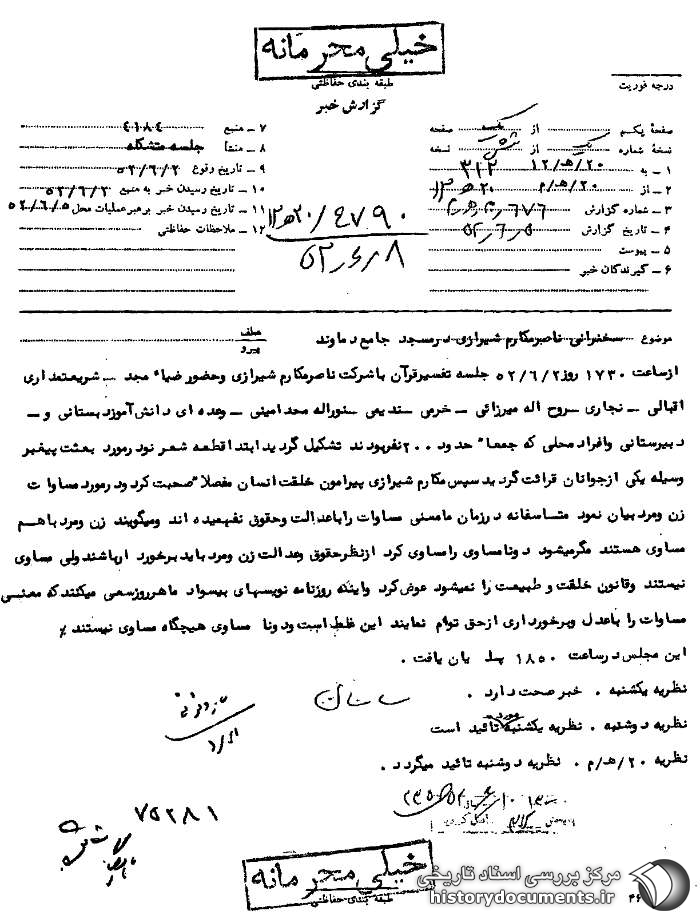 خیلی محرمانه
طبقه بندی حفاظتی
گزارش خبر
درجه فوریت
صفحه یکم از یک صفحه
نسخه شماره یک از شش نسخه
۱ ـ به ۲۰/هـ ۱۲/ ۳۱۲
۲ ـ از ۲۰/هـ/م
۳ ـ شماره گزارش
۴ ـ تاریخ گزارش
۵ ـ پیوست
۶ ـ گیرندگان خبر
۷ ـ منبع ۴۱۸۴
۸ ـ منشأ جلسه متشکله
۹ ـ تاریخ وقوع ۵۲/۶/۲
۱۰ ـ تاریخ رسیدن خبر به منبع ۵۲/۶/۲
۱۱ ـ تاریخ رسیدن خبر برهبرعملیات محل ۵۲/۶/۵
۱۲ ـ ملاحظات حفاظتی
۲۰هـ۱۲/۴۷۹۰
۵۲٫۶٫۸
موضوع سخنرانی ناصرمکارم شیرازی درمسجد جامع دماوند
عطف
پیرو
ازساعت ۱۷۳۰ روز ۵۲/۶/۲ جلسه تفسیرقرآن باشرکت ناصرمکارم شیرازی وحضور ضیاء مجد ـ شریعتمداری
اقبالی ـ نجاری ـ روح اله میرزائی ـ خرمی ـ ندیمی ـ نوراله محمدامینی ـ وعده ای دانش آموزدبستانی و ـ
دبیرستانی وافراد محلی که جمعاً حدود ۲۰۰نفربودند تشکیل گردید ابتدا قطعه شعر نودرمورد بعثت پیغمبر
وسیله یکی ازجوانان قرائت گردید سپس مکارم شیرازی پیرامون خلقت انسان مفصلاً صحبت کردودرمورد مساوات
زن ومرد بیان نمود متاسفانه درزمان مامعنی مساوات راباعدالت وحقوق نفهمیده اند ومیگویند زن ومرد باهم
مساوی هستند مگرمیشود دونامساوی رامساوی کرد ازنظرحقوق وعدالت زن ومرد باید برخورد ارباشند ولی مساوی
نیستند وقانون خلقت و طبیعت را نمیشود عوض کرد واینکه روزنامه نویسهای بیسواد ماهرروزسعی میکنند که معنی
مساوات را باعدل وبرخورداری ازحق توام نمایند این غلط است ودونا مساوی هیچگاه مساوی نیستند ٪
این مجلس درساعت ۱۸۵۰ پایان یافت .
نظریه یکشنبه . خبر صحت دارد .
نظریه دوشنبه . نظریه یکشنبه مورد تائید است
نظریه ۲۰/هـ/م . نظریه دوشنبه تائید میگردد .
۷۵۲۸۱
خیلی محرمانه
طبقه بندی حفاظتی
مرکز بررسی اسناد تاریخی
historydocuments.ir
۴۶